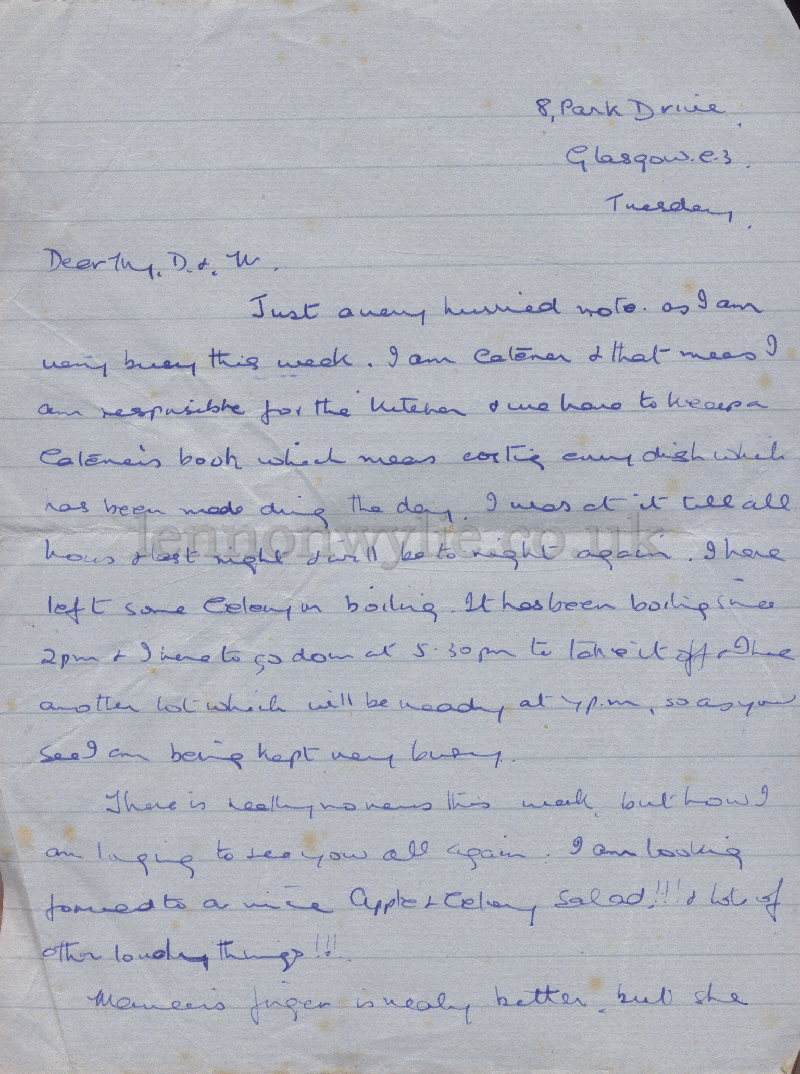 8, Park Drive,
Glasgow. C.3.
Tuesday,
Dear My, D. &. W.
Just a very hurried note. as I am
very busy this week. I am Caterer & that means I
am responsible for the Kitchen & we have to keep a
Caterer's book which means costing every dish which
has been made during the day. I was at it till all
hours last night & will be to night again. I have
left some Celery on boiling. It has been boiling since
2pm & I have to go down at 5.30 pm to take it off & I have
another lot which will be ready at 7p.m, so as you
see I am being kept very busy.
There is really no news this week, but how I
am longing to see you all again. I am looking
forward to a nice Apple & Celery Salad!!! & lots of
other lovely things!!!
finger is nearly better, but she
lennonwylie.co.uk